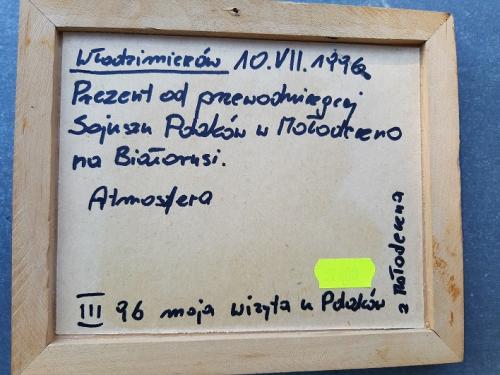 Włodzimierów 10.VII.1996
Prezent od przewodniczącej
Sojuszu Polaków w Mołodeczno
na Białorusi.
Atmosfera
III 96 moja wizyta u Polaków
z Mołodeczna